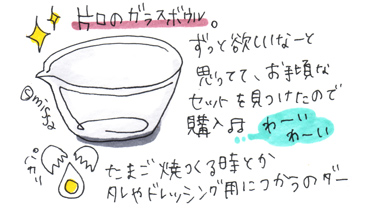 片口のガラスボウル。
ずっと欲しいなーと
思ってて、お手頃な
セットを見つけたので
購入
わーい
わーい
©misa
パカッ
たまご焼つくる時とか
タレやドレッシング用につかうのダー